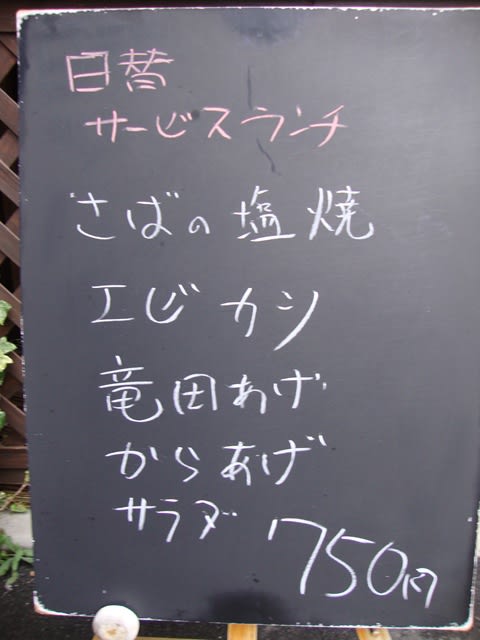 日替
サービスランチ
さばの塩焼
エビカツ
竜田あげ
からあげ
サラダ 750円